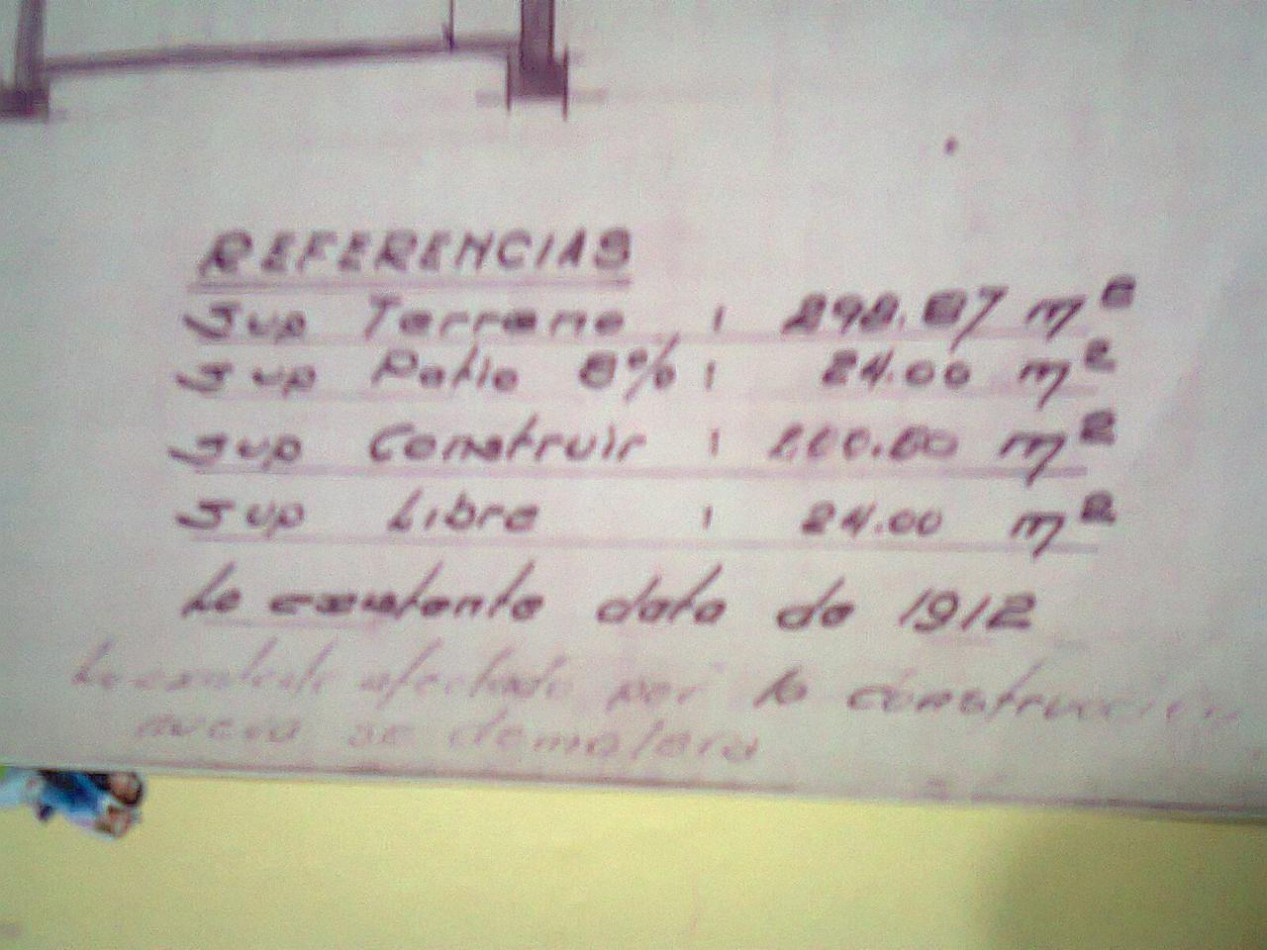 REFERENCIAS
Sup Terreno : m²
Sup Patio 8% : 24.00 m²
Sup Construir : m²
Sup Libre : 24.00 m²
Lo existente data de 1912
Lo existente afectado por la construccion
nueva se demolera